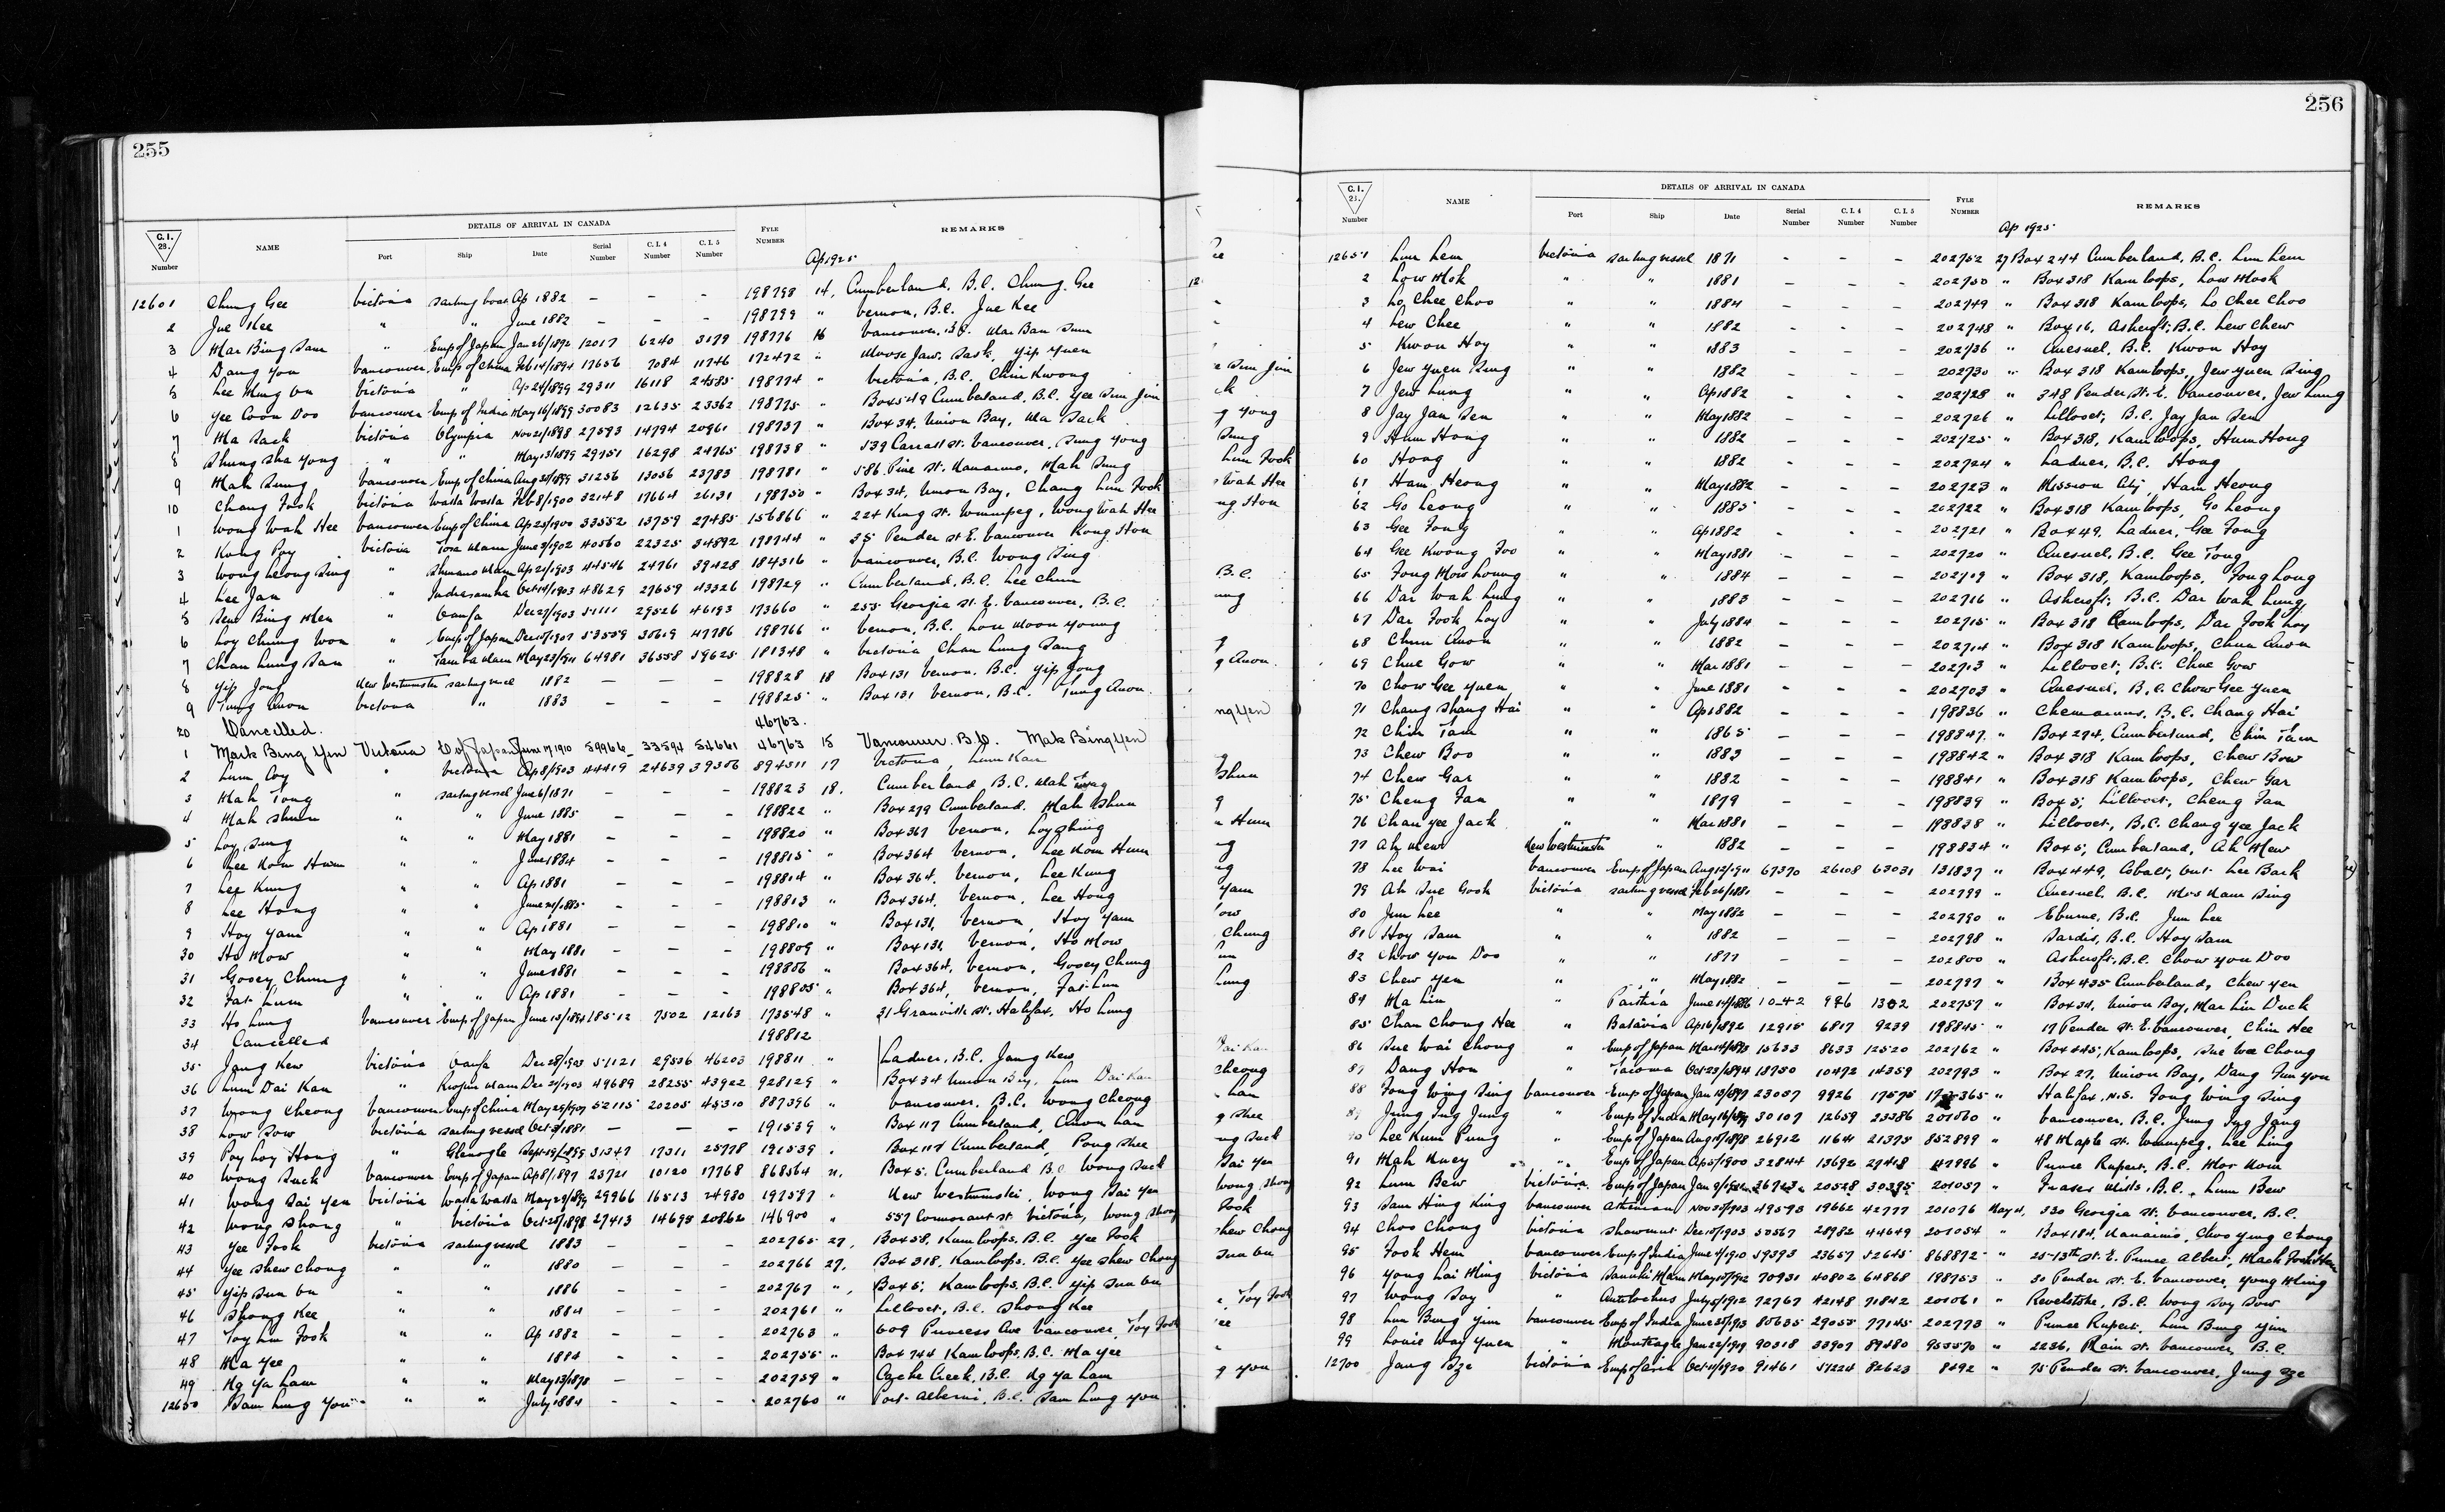 255
DETAILS OF ARRIVAL IN CANADA
C.I. 28. Number NAME Port Ship Date Serial Number C.I.4 Number C.I.5 Number FYLE NUMBER REMARKS
Ap 1925
12601 Chung Gee Victoria sailing boat Ap 1882 – – – 198798 14, Cumberland, B.C. Chung Gee
2 Jue Kee " " June 1882 – – – 198799 " Vernon, B.C. Jue Kee
3 Mar Bing Sam " Emp of Japan Jan 26/1892 12017 6240 3179 198776 16 Vancouver, B.C. Mar Ban Sum
4 Dang You Vancouver Emp of China Feb 14/1894 17656 7084 11746 172472 " Moose Jaw, Sask, Yip Yuen
5 Lee Ming Victoria " Ap 24/1899 29311 16118 24585 198774 " Victoria, B.C. Chin Kwong
6 Yee Coon Doo Vancouver Emp of India May 16/1899 30083 12635 23362 198775 " Box 549 Cumberland, B.C. Yee Sim Jin
7 Ma Sack Victoria Olympia Nov 21/1898 27593 14794 20961 198737 " Box 34, Union Bay, Ma Sack
8 Shung Sha Yong " " May 13/1899 29751 16298 24765 198738 " 539 Carrall St. Vancouver, Sung Yong
9 Mah Sung Vancouver Emp of China Aug 28/1899 31256 13056 23783 198781 " 586 Pine St. Nanaimo, Mah Sung
10 Chang Fook Victoria Walla Walla Feb 8/1900 32148 17664 26131 198750 " Box 34, Union Bay, Chang Lim Fook
1 Wong Wah Hee Vancouver Emp of China Ap 25/1900 33552 13759 27485 156866 " 224 King St. Winnipeg, Wong Wah Hee
2 Kong Poy Victoria Tosa Maru June 3/1902 40560 22325 34892 198744 " 35 Pender St E. Vancouver Kong Hon
3 Wong Leong Sing " Shinano Maru Ap 21/1903 44546 24761 39428 184316 " Vancouver, B.C. Wong Sing
4 Lee Jan " Indrasamha Oct 14/1903 48629 27659 43326 198729 " Cumberland, B.C. Lee Chun
5 Sew Bing Men " Oanfa Dec 27/1903 51111 29526 46193 173660 " 255 Georgia St. E. Vancouver, B.C.
6 Loy Chung Won " Emp of Japan Dec 10/1907 53559 30619 47786 198766 " Vernon, B.C. Lou Moon Young
7 Chan Lung San " Tamba Maru May 23/1911 64981 36558 59625 181348 " Victoria, Chan Lung Sang
8 Yip Jong New Westminster sailing vessel 1882 – – – 198828 18 Box 131 Vernon, B.C. Yip Jong
9 Tung Quon Victoria " 1883 – – – 198825 " Box 131 Vernon, B.C. Tung Quon
20 Cancelled. 46763.
1 Mark Bing Yen Victoria E. of Japan June 17 1910 59966 33594 54661 46763 15 Vancouver. B.C. Mak Bing Yen
2 Lum Coy " Victoria Ap 8/1903 44419 24639 39306 894311 17 Victoria, Lum Kau
3 Mah Tong " sailing vessel June 6/1871 – – – 198823 18. Cumberland B.C. Mah Tong
4 Mah Shun " " June 1885 – – – 198822 " Box 279 Cumberland. Mah Shun
5 Loy Sung " " May 1881 – – – 198820 " Box 367 Vernon, Loy Shing
6 Lee Kom Hum " " June 1884 – – – 198815 " Box 364 Vernon, Lee Kom Hum
7 Lee Kung " " Ap 1881 – – – 198814 " Box 364. Vernon, Lee Kung
8 Lee Hong " " June 21/1885 – – – 198813 " Box 364. Vernon, Lee Hong
9 Hoy Yam " " Ap 1881 – – – 198810 " Box 131, Vernon, Hoy Yam
30 Ho Mow " " May 1881 – – – 198809 " Box 131, Vernon, Ho Mow
31 Gooey Chung " " June 1881 – – – 198806 " Box 364, Vernon, Gooey Chung
32 Fat Lum " " Ap 1881 – – – 198805 " Box 364, Vernon, Fat Lum
33 Ho Lung Vancouver Emp of Japan June 13/1894 18512 7502 12163 173548 " 31 Granville St. Halifax, Ho Lung
34 Cancelled 198812
35 Jang Kew Victoria Oanfa Dec 28/1903 51121 29536 46203 198811 " Ladner, B.C. Jang Kew
36 Lum Dai Kau " Maru Dec 21/1903 49689 28255 43922 928129 " Box 34 Union Bay, Lum Dai Kau
37 Wong Cheong Vancouver Emp of China May 29/1907 52115 20205 45310 887396 " Vancouver. B.C. Wong Cheong
38 Low Sow Victoria sailing vessel Oct 3/1881 – – – 191539 " Box 117 Cumberland, Quon Lan
39 Poy Loy Hong " Glenogle Sept 29/1899 31347 17311 25778 191539 . Box 117 Cumberland, Pong Shee
40 Wong Suck Vancouver Emp of Japan Ap 8/1897 23721 10120 17768 868564 21, Box 5. Cumberland B.C. Wong Suck
41 Wong Sai Yen Victoria Walla Walla May 29/1899 29966 16513 24980 197597 " New Westminster, Wong Sai Yen
42 Wong Shong " Victoria Oct 25/1898 27413 14695 20862 146900 " 557 Cormorant St Victoria, Wong Shong
43 Yee Fook Victoria sailing vessel 1883 – – – 202765 27, Box 58, Kamloops, B.C. Yee Fook
44 Yee Shew Chong " " 1880 – – – 202766 27, Box 318, Kamloops, B.C. Yee Shew Chong
45 Yip Sun On " " 1886 – – – 202767 ", Box 5, Kamloops, B.C. Yip Sun On
46 Shong Kee " " 1884 – – – 202761 " Lillooet, B.C. Shong Kee
47 Toy Lim Fook " " Ap 1882 – – – 202763 " 609 Princess Ave Vancouver, Toy Fook
48 Ma Yee " " 1884 – – – 202755 " Box 744 Kamloops, B.C. Ma Yee
49 Ng Ya Lam " " May 13/1878 – – – 202759 " Cache Creek, B.C. Ng Ya Lam
12650 Sam Lung You " " July 1884 – – – 202760 " Port Alberni, B.C. Sam Lung You
256
DETAILS OF ARRIVAL IN CANADA
C.I. 28. Number NAME Port Ship Date Serial Number C.I.4 Number C.I.5 Number FYLE NUMBER REMARKS
Ap 1925
12651 Lum Lem Victoria sailing vessel 1871 – – – 202752 27 Box 244 Cumberland, B.C. Lum Lem
2 Low Mok " " 1881 – – – 202750 " Box 318 Kamloops, Low Mook
3 Lo Chee Choo " " 1884 – – – 202749 " Box 318 Kamloops, Lo Chee Choo
4 Lew Chee " " 1882 – – – 202748 " Box 16, Ashcroft, B.C. Lew Chew
5 Kwon Hoy " " 1883 – – – 202736 " Quesnel, B.C. Kwon Hoy
6 Jew Yuen Sing " " 1882 – – – 202730 " Box 318 Kamloops, Jew Yuen Sing
7 Jew Lung " " Ap 1882 – – – 202728 " 348 Pender St. E. Vancouver, Jew Lung
8 Jay Jan Sen " " May 1882 – – – 202726 " Lillooet, B.C. Jay Jan Sen
9 Hum Hong " " 1882 – – – 202725 " Box 318, Kamloops, Hum Hong
60 Hong " " 1882 – – – 202724 " Ladner, B.C. Hong
61 Ham Heong " " May 1882 – – – 202723 " Mission City, Ham Heong
62 Go Leong " " 1885 – – – 202722 " Box 318 Kamloops, Go Leong
63 Gee Tong " " Ap 1882 - - - 202721 " Box 49, Ladner, Gee Tong
64 Gee Kwong Foo " " May 1881 – – – 202720 " Quesnel, B.C. Gee Tong
65 Fong Mow Loung " " 1884 – – – 202719 " Box 318, Kamloops, Fong Long
66 Dar Wah Lung " " 1883 – – – 202716 " Ashcroft, B.C. Dar Wah Lung
67 Dar Fook Loy " " July 1884 – – – 202715 " Box 318 Kamloops, Dar Fook Loy
68 Chun Quon " " 1882 – – – 202714 " Box 318 Kamloops, Chun Quon
69 Chue Gow " " Mar 1881 – – – 202713 " Lillooet, B.C. Chue Gow
70 Chow Gee Yuen " " June 1881 – – – 202703 " Quesnel, B.C. Chow Gee Yuen
71 Chang Shang Hai " " Ap 1882 – – – 198836 " Chemainus, B.C. Chang Hai
72 Chin Tam " " 1865 – – – 198847 " Box 274, Cumberland, Chin Tam
73 Chew Boo " " 1883 – – – 198842 " Box 318 Kamloops, Chew Bow
74 Chew Gar " " 1882 – – – 198841 " Box 318 Kamloops, Chew Gar
75 Cheng Fan " " 1879 – – – 198839 " Box 5, Lillooet, Cheng Fan
76 Chan Yee Jack " " Mar 1881 – – – 198838 " Lillooet, B.C. Chang Yee Jack
77 Ah Mew New Westminster " 1882 – – – 198834 " Box 5, Cumberland, Ah Mew
78 Lee Wai Vancouver Emp of Japan Aug 12/1911 67370 26108 63031 131837 " Box 449, Cobalt, Ont Lee Back
79 Ah Sue Gook Victoria sailing vessel Feb 26/1881 – – – 202799 " Quesnel, B.C. Mrs Nam Sing
80 Jum Lee " " May 1882 – – – 202790 " Eburne, B.C. Jum Lee
81 Hoy Sam " " 1882 – – – 202798 " Sardis, B.C. Hoy Sam
82 Chow You Doo " " 1877 – – – 202800 " Ashcroft, B.C. Chow You Doo
83 Chew Yen " " May 1882 – – – 202797 " Box 435 Cumberland, Chew Yen
84 Ma Lin " Parthia June 14/1886 1042 976 1302 202757 " Box 34, Union Bay, Mar Lin Duck
85 Chan Chong Hee " Batavia Ap 16/1892 12915 6817 9239 198845 " 17 Pender St. E. Vancouver, Chin Hee
86 Sue Wai Chong " Emp of Japan Mar 14/1893 15633 8633 12520 202762 " Box 545, Kamloops, Sue Wee Chong
87 Dang Hon " Tacoma Oct 23/1894 18750 10472 14359 202793 " Box 27, Union Bay, Dang Fun You
88 Fong Wing Sing Vancouver Emp of Japan Jan 13/1897 23057 9926 17575 365 " Halifax, N.S. Fong Wing Sing
89 Jung Ing Jung " Emp of India May 16/1899 30107 12659 23386 201060 " Vancouver, B.C. Jung Jang
90 Lee Kum Pung " Emp of Japan Aug 15/1898 26912 11641 21375 852899 " 48 Maple St. Winnipeg, Lee Ling
91 Mah Kuey " " Emp of Japan Ap 5/1900 32844 13692 27448 47996 " Prince Rupert, B.C. Mor Kom
92 Lum Bew Victoria. Emp of Japan Jan 36723 20528 30395 201057 " Fraser Mills, B.C., Lum Bew
93 Sam Hing King Vancouver Athenian Nov 30/1903 49593 19662 42777 201076 May 4, 330 Georgia St. Vancouver, B.C.
94 Choo Chong Victoria Shawmut Dec 15/1903 50567 28982 44649 201054 " Box 184, Nanaimo, Choo Ying Chong
95 Fook Hem Vancouver Emp of India June 1/1910 59393 23657 52645 868872 " 25-13th St. E. Prince Albert, Mack Fook Hem
96 Yong Lai Ming Victoria Sanuki Maru May 15/1912 70931 40802 64868 198753 " 30 Pender St. E. Vancouver, Yong Ming
97 Wong Soy " Antilochus July 5/1912 72767 42148 71842 201061 " Revelstoke, B.C. Wong Soy Sow
98 Lim Bung Yim Vancouver Emp of India June 25/1913 80635 29055 77145 202773 " Prince Rupert. Lum Bung Yim
99 Louie Way Yuen " Monteagle Jan 22/1919 90318 33907 89480 953570 " 2236, Main St. Vancouver, B.C.
12700 Jang Sze Victoria Emp of Asia Oct 11/1920 91461 51224 82623 8492 " 75 Pender St. Vancouver, Jung Sze